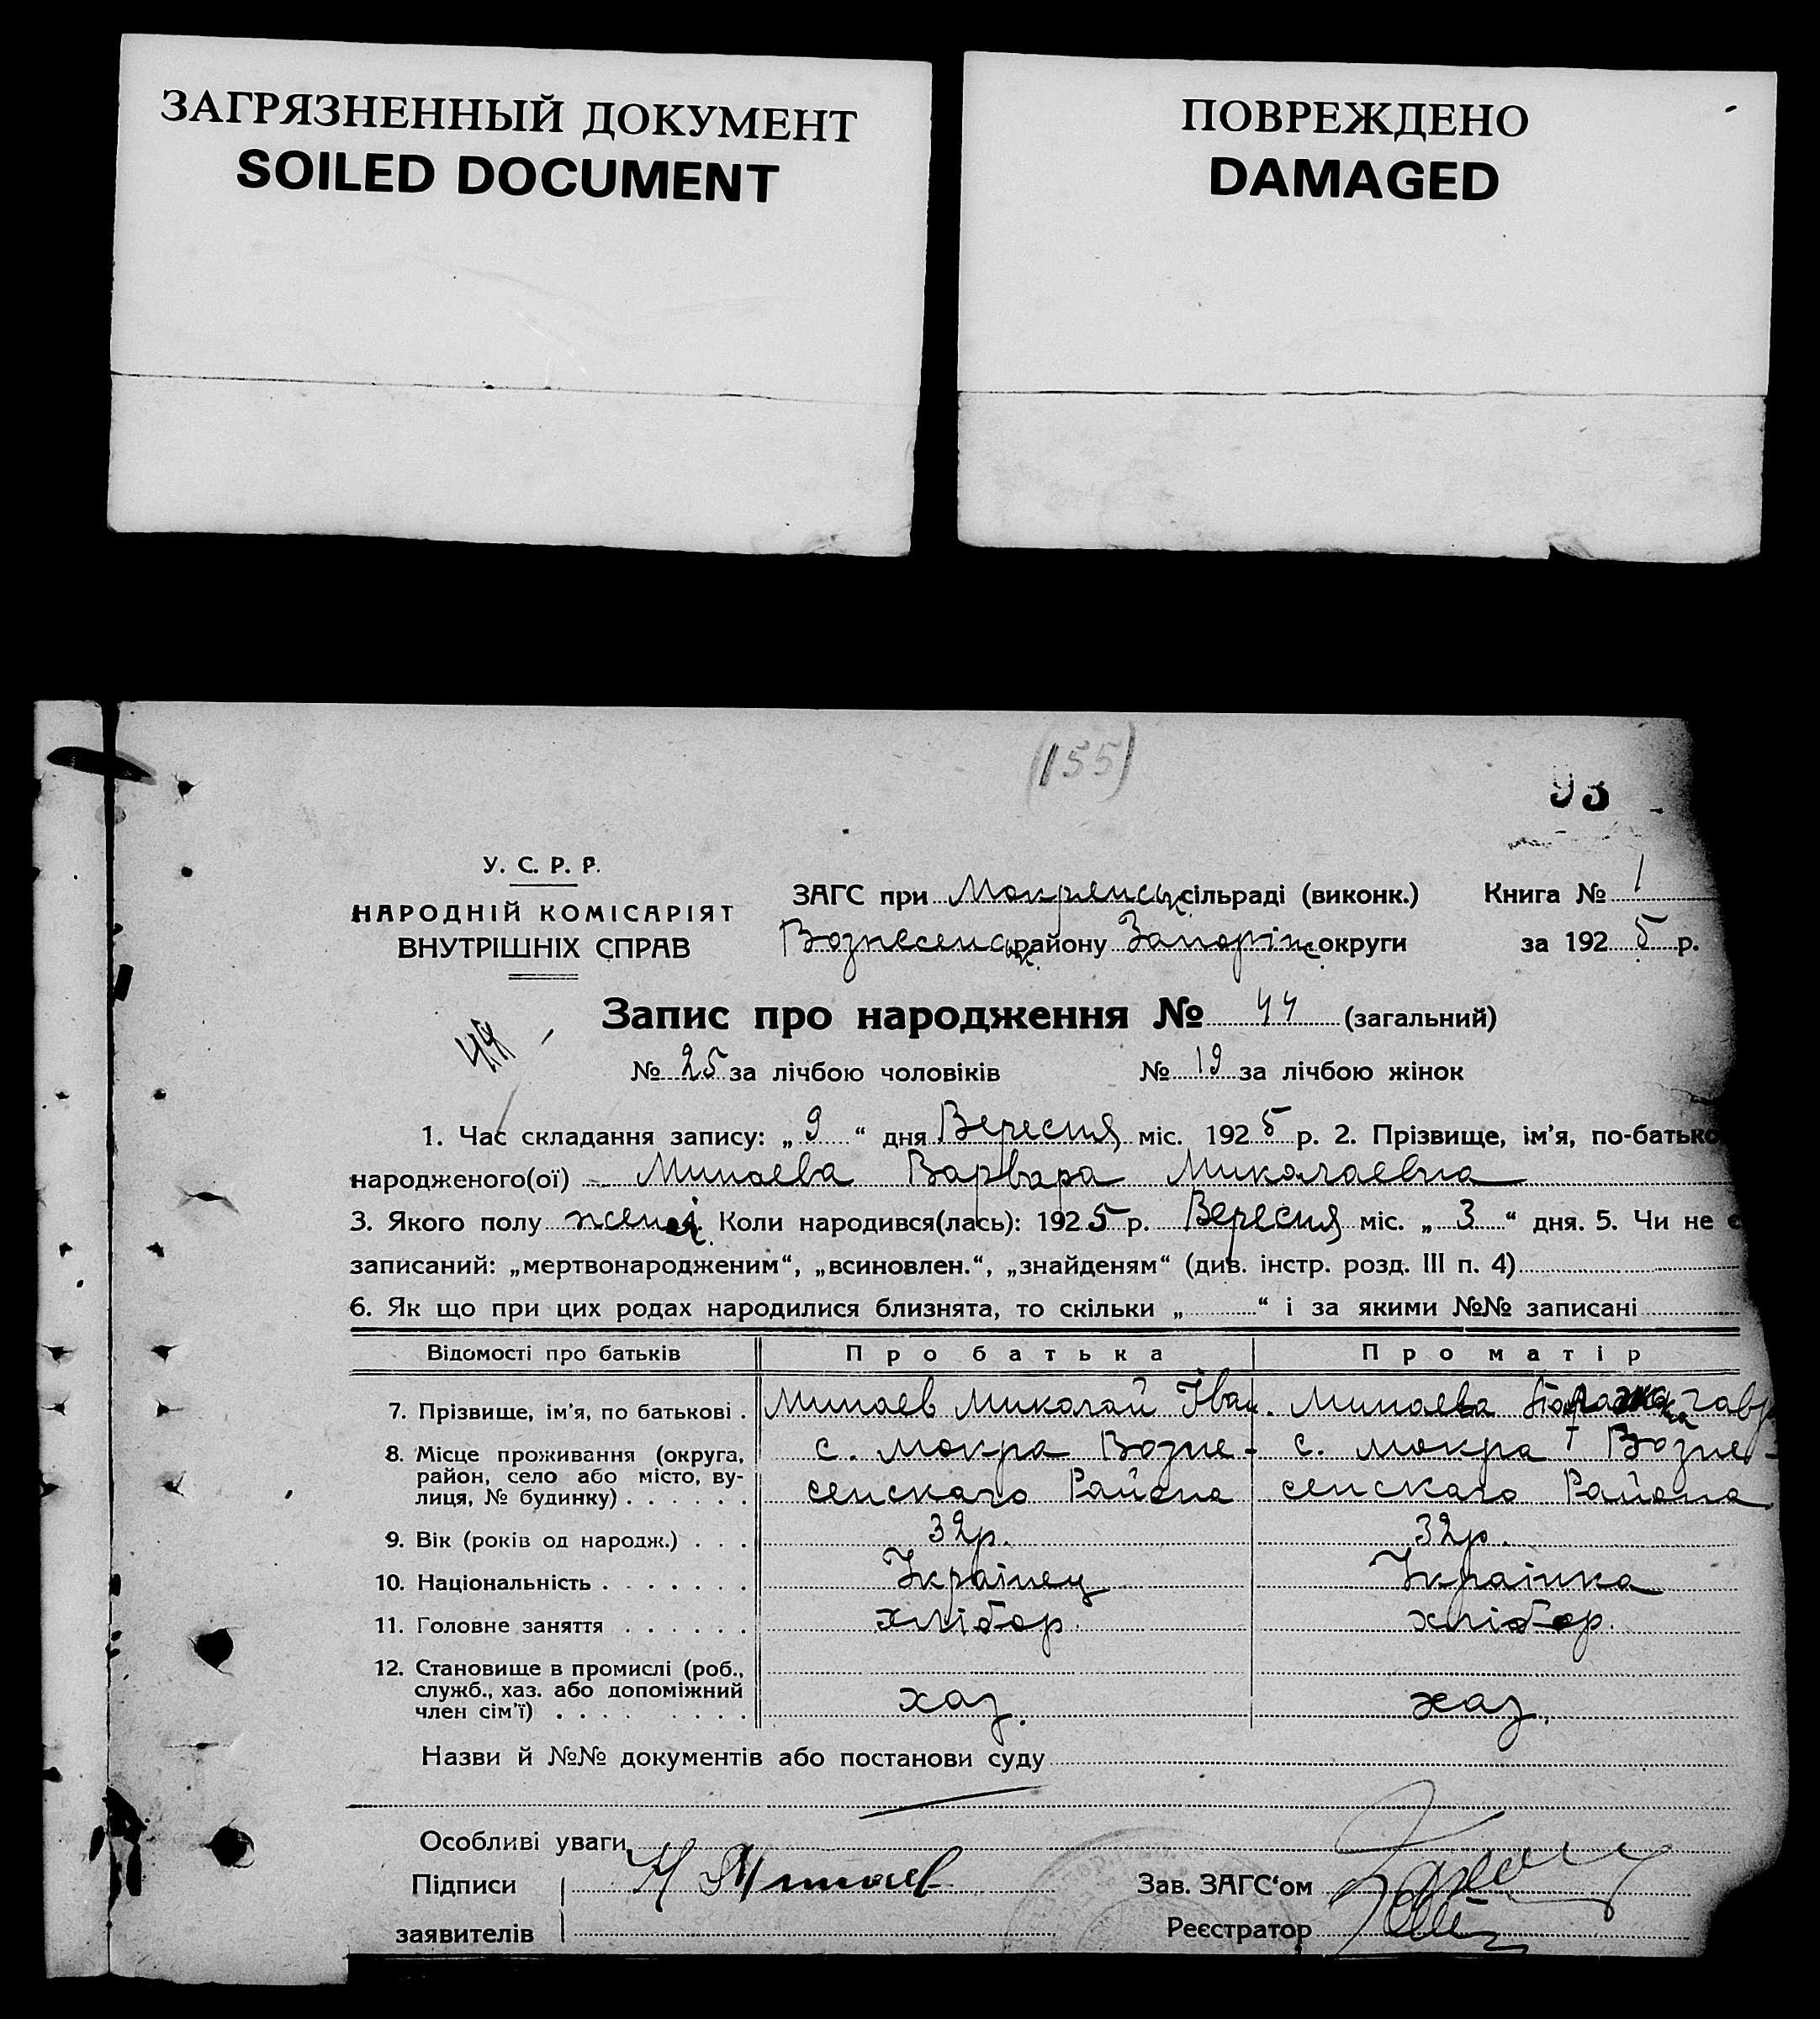 ЗАГРЯЗНЕННЫЙ ДОКУМЕНТ
SOILED DOCUMENT
ПОВРЕЖДЕНО
DAMAGED
(155)
93
У. С. Р. Р.
НАРОДНІЙ КОМІСАРІЯТ
ВНУТРІШНІХ СПРАВ
ЗАГС при Мокренськ. сільраді (виконк.) Книга № 1
Вознесенськ. району Запоріж. округи за 1925 р.
Запис про народження № 44 (загальний)
44
№ 25 за лічбою чоловіків № 19 за лічбою жінок
1. Час складання запису: „9“ дня Вересня міс. 1925 р. 2. Прізвище, ім'я, по-батько
народженого(ої) Минаева Варвара Миколаевна
3. Якого полу Коли народився(лась): 1925 р. Вересня міс. „3“ дня. 5. Чи не є
записаний: „мертвонародженим“, „всиновлен.“, „знайденям“ (див. інстр. розд. III п. 4)
6. Як що при цих родах народилися близнята, то скільки „ “ і за якими №№ записані
Відомості про батьків Про батька Про матір
7. Прізвище, ім'я, по батькові . Минаев Миколай Іван. Минаева Гавр
8. Місце проживання (округа, район, село або місто, вулиця, № будинку) . . . . . . с. мокра Возне- с. мокра Возне-
сенскаго Района сенскаго Района
9. Вік (років од народж.) . . . 32р. 32р.
10. Національність . . . . . . . Українец Українка
11. Головне заняття . . . . . . хлібор. хлібор.
12. Становище в промислі (роб., служб., хаз. або допоміжний член сім'ї) . . . . . . . . . хаз. хаз.
Назви й №№ документів або постанови суду
Особливі уваги
Підписи Н Минаев Зав. ЗАГС'ом
заявителів Реєстратор